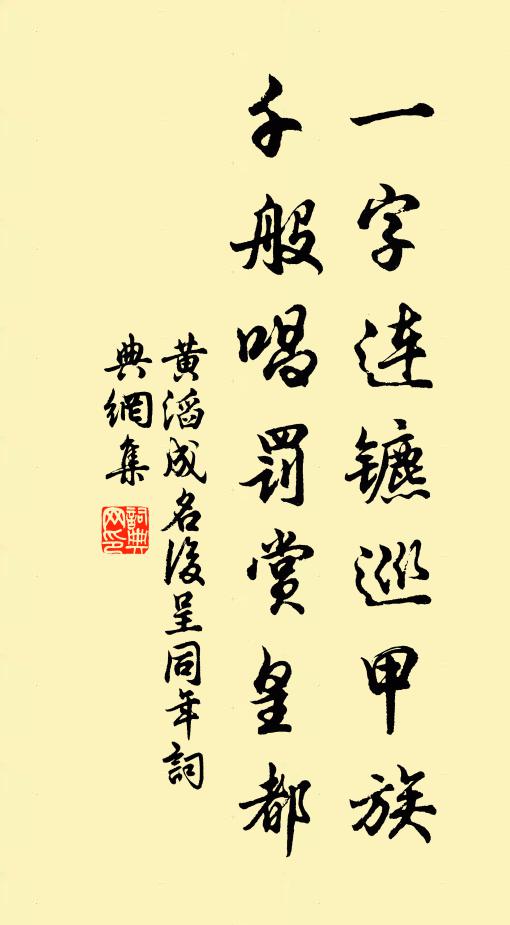 一字連鑣巡甲族
千般唱罰賞皇都
黄滔成名後呈同年詞
典網集
詞典
网印